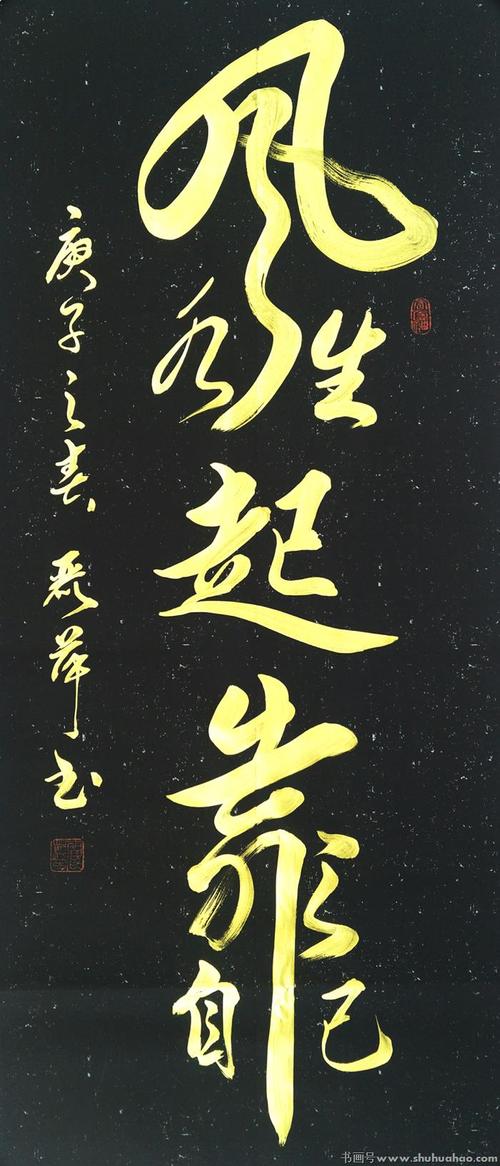 风生水起靠自己
庚子之春 萍书
书画号www.shuhuahao.com